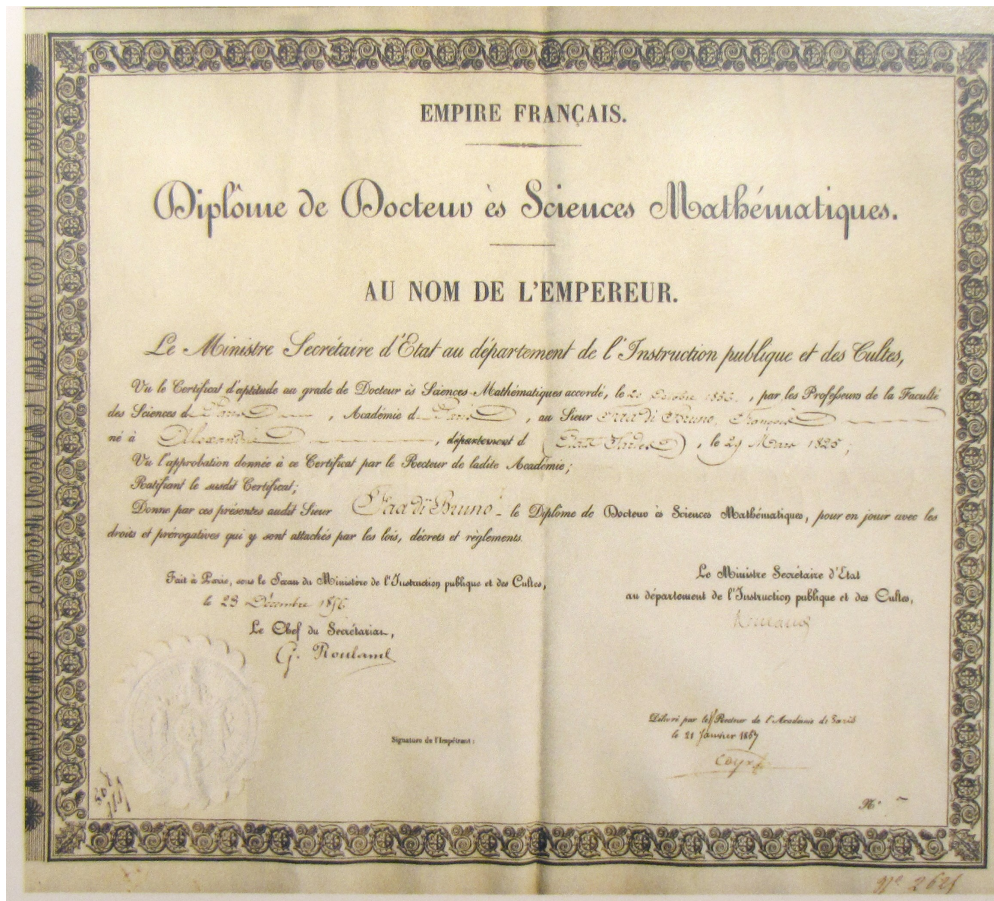 EMPIRE FRANÇAIS.
Diplôme de Docteur ès Sciences Mathématiques.
AU NOM DE L'EMPEREUR.
Le Ministre Secrétaire d'Etat au département de l'Instruction publique et des Cultes,
Vu le Certificat d'aptitude au grade de Docteur ès Sciences Mathématiques accordé, le 20 Octobre 1856, par les Professeurs de la Faculté
des Sciences d Paris, Académie d Paris, au Sieur Faà di Bruno, François
né à Alexandrie, département d (Etats Sardes), le 29 Mars 1825;
Vu l'approbation donnée à ce Certificat par le Recteur de ladite Académie;
Ratifiant le susdit Certificat;
Donne par ces présentes audit Sieur Faà di Bruno le Diplôme de Docteur ès Sciences Mathématiques, pour en jouir avec les
droits et prérogatives qui y sont attachés par les lois, décrets et règlements.
Fait à Paris, sous le Sceau du Ministère de l'Instruction publique et des Cultes,
le 23 Décembre 1856
Le Chef du Secrétariat,
G. Rouland
Le Ministre Secrétaire d'Etat
au département de l'Instruction publique et des Cultes,
Rouland
Délivré par le Recteur de l'Académie de Paris
le 21 Janvier 1857
Signature de l'Impétrant:
N°
N° 2621